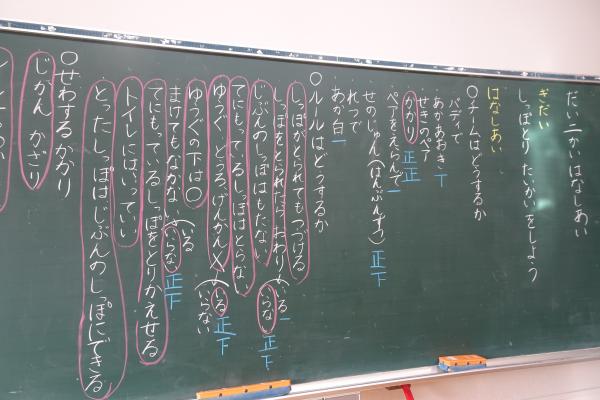 だい二かいはなしあい
ぎだい
しっぽとり たいかい をしよう
はなしあい
○チームはどうするか
バディで
あかあおき 丅
せきのペア
かかり 正正
ペアをえらんで 一
せのじゅん（はんぶんずつ） 正下
れつで
あか白 一
○ルールはどうするか
しっぽがとられてもつづける
しっぽをとられたらおわり（いる 一
いらない 正下
じぶんのしっぽはもたない
てにもっているしっぽはとらない
ゆうぐ、どうろ、げんかん×（いる 正下
いらない
ゆうぐの下は○
まけてもなかない（いる
いらない 正下
てにもっているしっぽをとりかえせる
トイレにはいっていい
とったしっぽはじぶんのしっぽにできる
○せわするかかり
じかん かざり